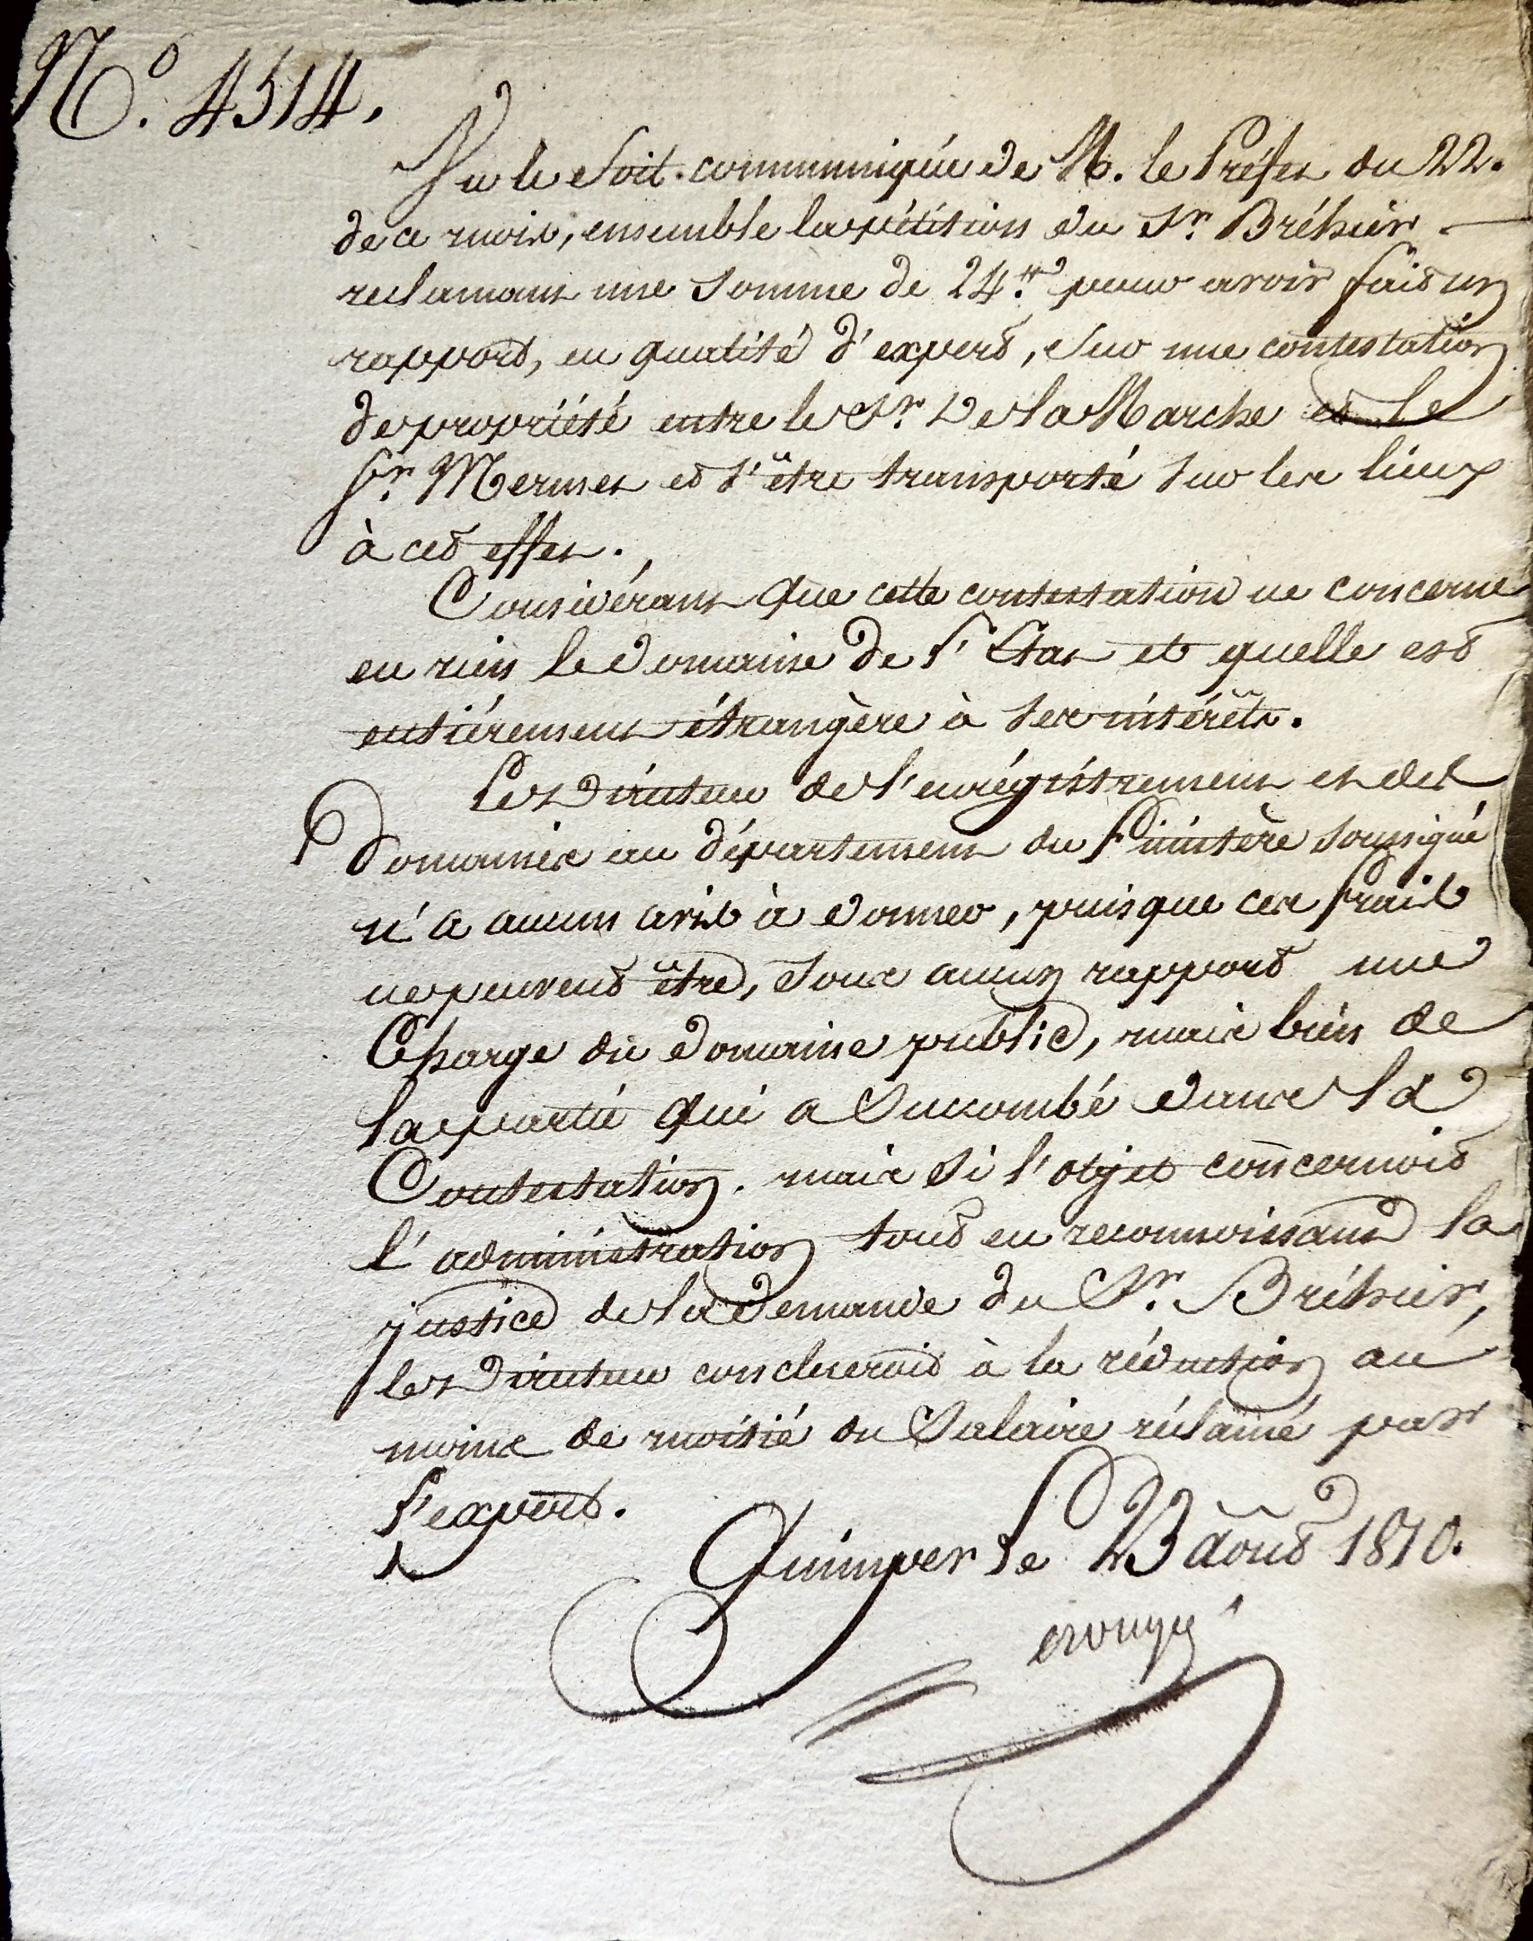 N.° 4514.
Vu le Soit-communiquée de M. le Préfet du 22.
de ce mois, ensemble la pétition du Sr. Bréhier
reclamant une somme de 24.tt pour avoir fait un
rapport, en qualité d'expert, sur une contestation
de propriété entre le Sr. De la Marche et le
Sr. Mermet et s'être transporté sur les lieux
à cet effet.
Considérant que cette contestation ne concerne
en rien le domaine de l'Etat et quelle est
entiérement étrangère à ses intérêts.
Le Directeur de l'enrégistrement et des
Domaines au département du Finistère soussigné
n'a aucun avis à donner, puisque ces frais
ne peuvent être, sous aucun rapport une
Charge du domaine public, mais bien de
la partie qui a Succombé dans la
Contestation. mais si l'objet concernoit
l'administration tout en reconnoissant la
justice de la demande du Sr. Bréhier,
le Directeur concluerait à la réduction au
moins de moitié du Salaire réclamé par
l'expert.
Quimper le 23 aout 1810.